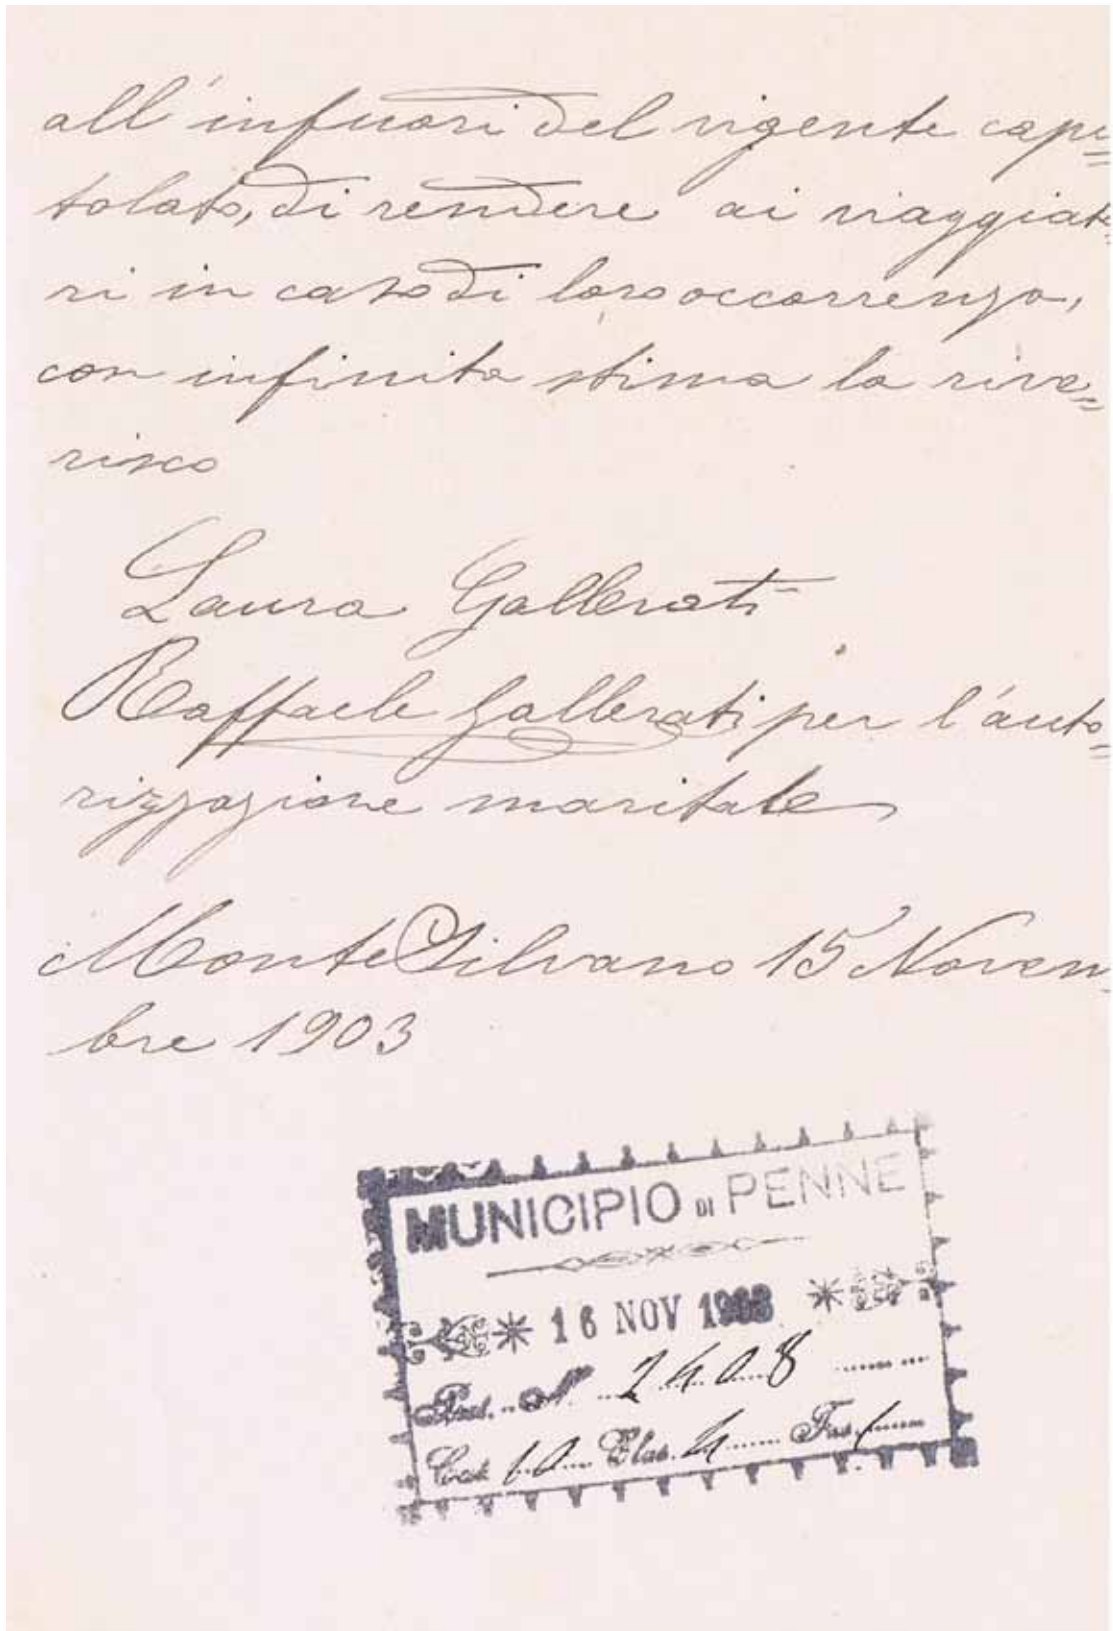 all'infuori del vigente capi=
tolato, di rendere ai viaggiato=
ri in caso di loro occorrenza,
con infinita stima la rive=
risco
Laura Gallerati
Raffaele Gallerati per l'auto=
rizzazione maritale
Monte Silvano 15 Novem=
bre 1903
MUNICIPIO DI PENNE
16 NOV 1903
Prot. N. 2408
Cat. 10 Clas. 4 Fas. 1